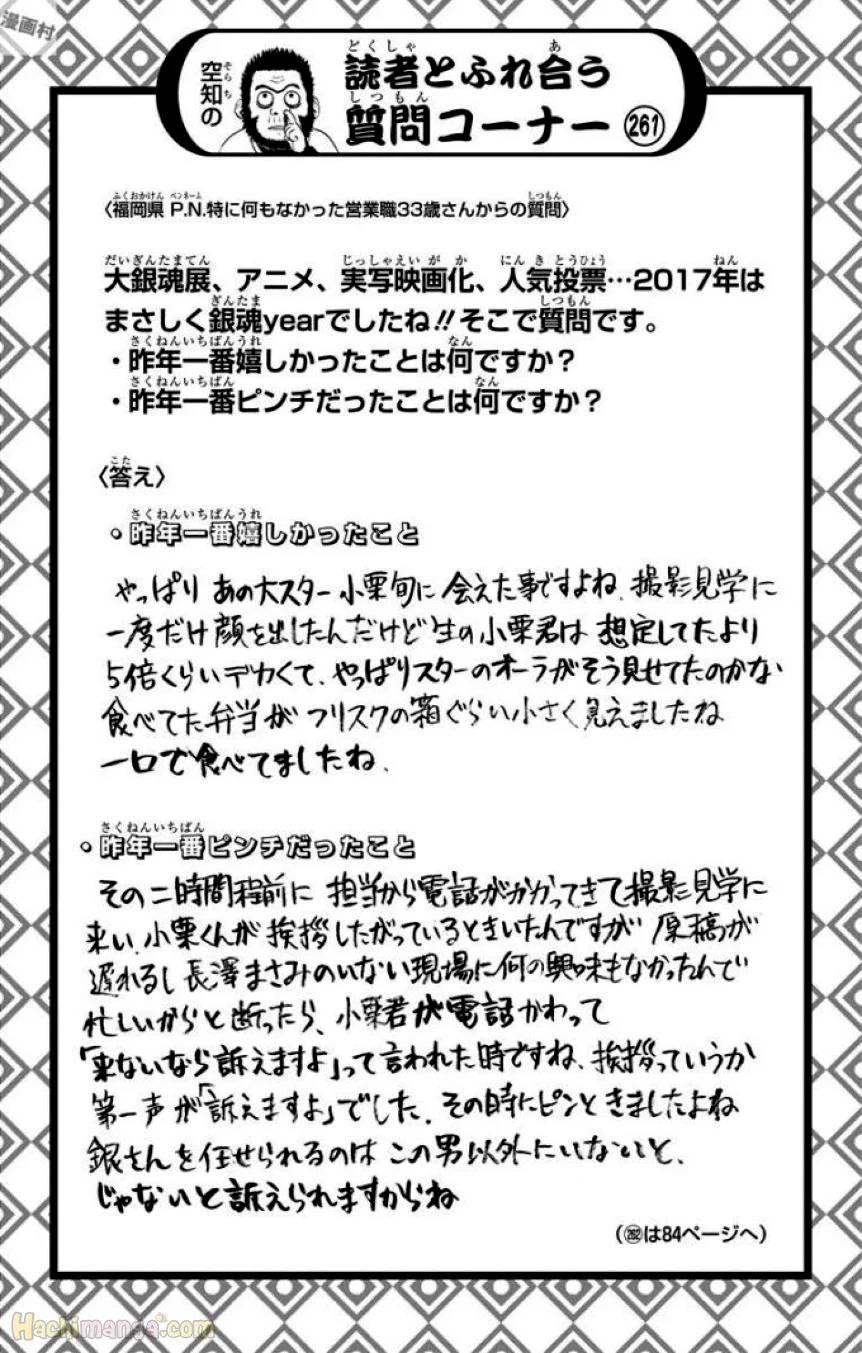 漫画村
空知の
読者とふれ合う
質問コーナー 261
〈福岡県 P.N.特に何もなかった営業職33歳さんからの質問〉
大銀魂展、アニメ、実写映画化、人気投票…2017年は
まさしく銀魂yearでしたね!!そこで質問です。
・昨年一番嬉しかったことは何ですか?
・昨年一番ピンチだったことは何ですか?
〈答え〉
・昨年一番嬉しかったこと
やっぱり あの大スター小栗旬に会えた事ですよね、撮影見学に
一度だけ顔を出したんだけど生の小栗君は想定してたより
5倍くらいデカくて、やっぱりスターのオーラがそう見せてたのかな
食べてた弁当がフリスクの箱ぐらい小さく見えましたね
一口で食べてましたね、
・昨年一番ピンチだったこと
その二時間程前に担当から電話がかかってきて撮影見学に
来い、小栗くんが挨拶したがっているときいたんですが 原稿が
遅れるし長澤まさみのいない現場に何の興味もなかったんで
忙しいからと断ったら、小栗君が電話かわって
「来ないなら訴えますよ」って言われた時ですね、挨拶っていうか
第一声が「訴えますよ」でした、その時にピンときましたよね
銀さんを任せられるのはこの男以外にいないと、
じゃないと訴えられますからね
(262は84ページへ)
Hachimanga.com